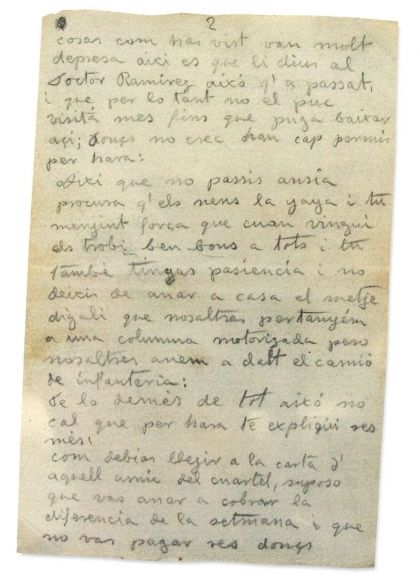 2
cosas com has vist van molt
depresa aixi es que li dius al
Doctor Ramirez aixó q' a passat,
i que per lo tant no el puc
visitá mes fins que puga baixar
açi; donçs no crec han cap permis
per hara:
Aixi que no passis ansia
procura q' els nens la yaya i tu
menjint força que cuan vingui
els trobi ben bons a tots i tu
també tingas pasiencia i no
deixis de anar a casa el metje
digali que nosaltres pertanyém
a una columna motorizada pero
nosaltres anem a dalt el camió
de infanteria:
De lo demés de tot aixó no
cal que per hara te expliqui res
més;
com debias llegir a la carta d'
aquell amic del cuartel, suposo
que vas anar a cobrar la
diferencia de la setmana i que
no vas pagar res donçs